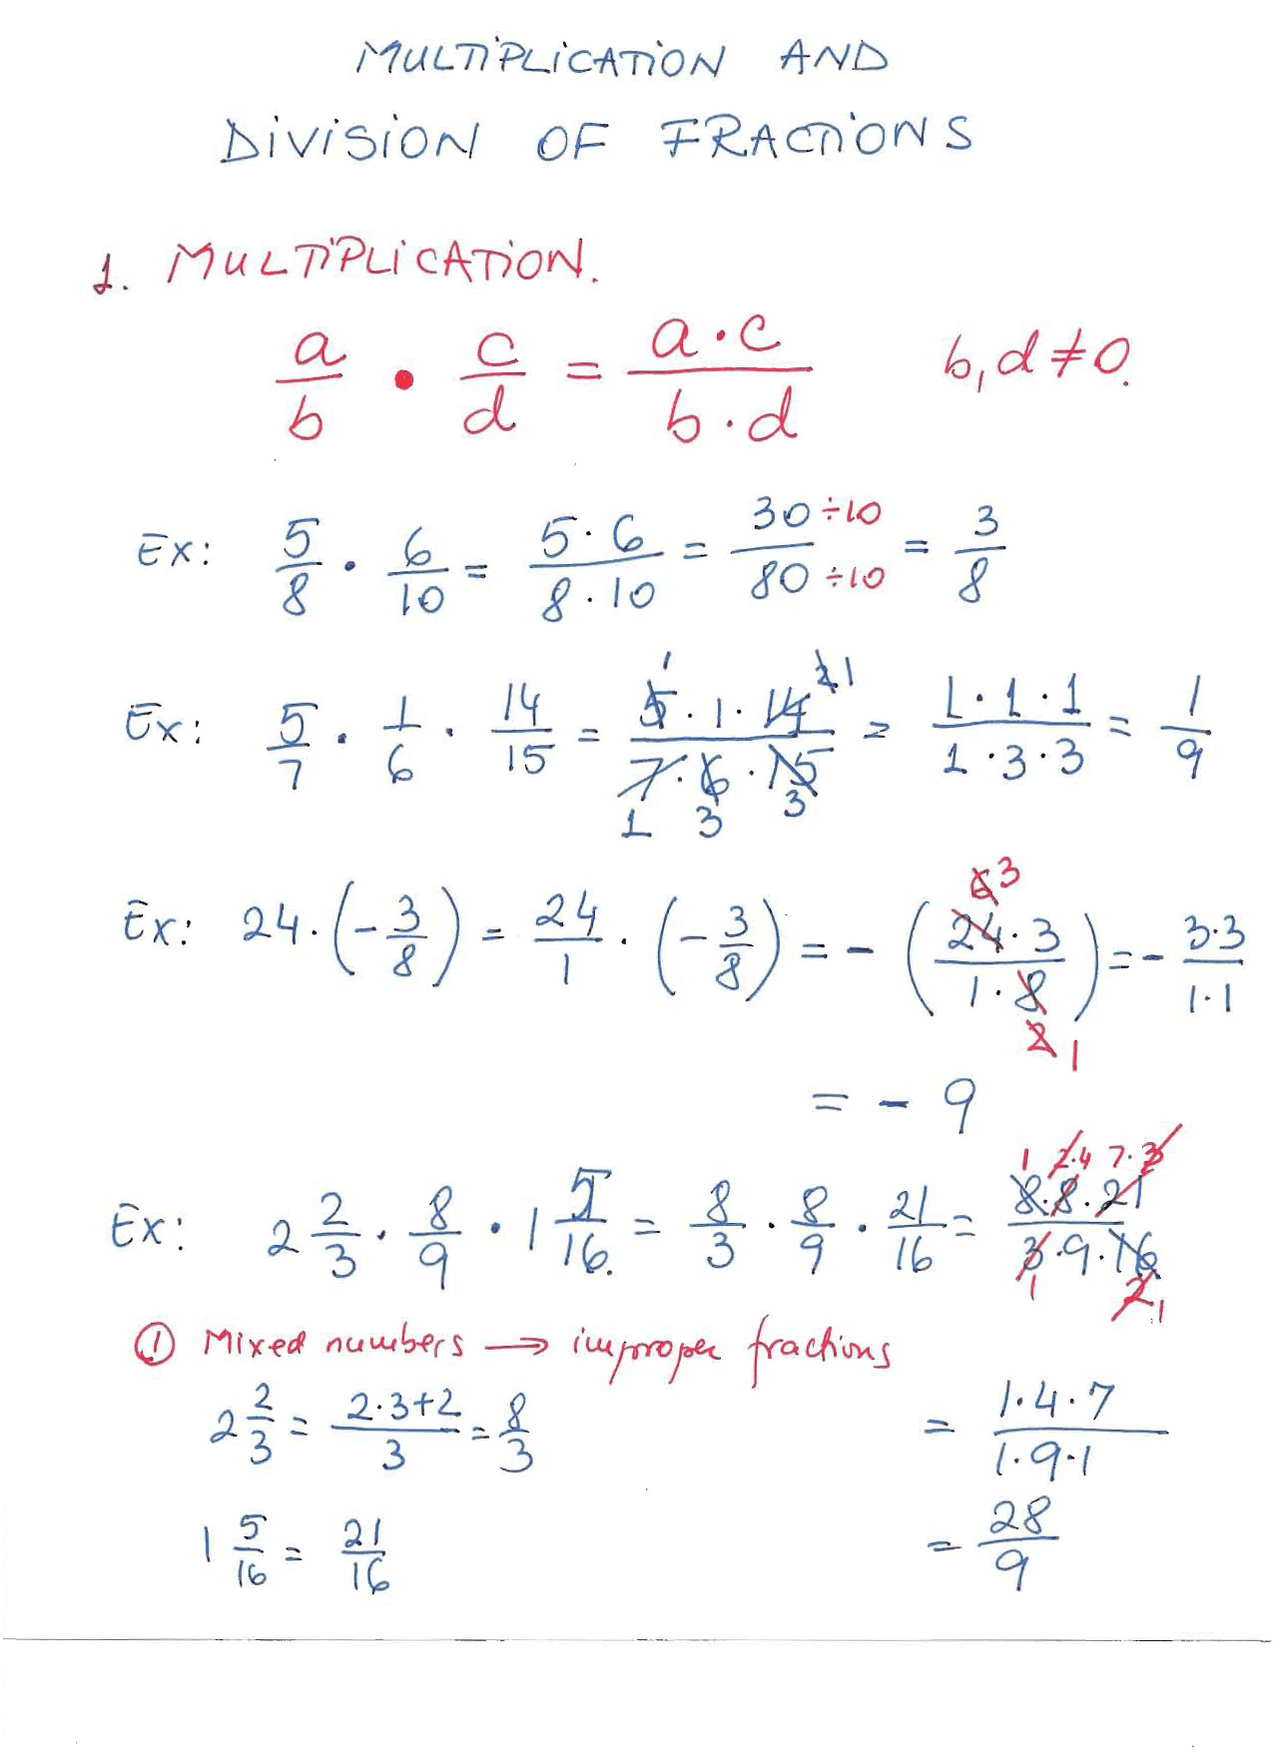 MULTIPLICATION AND
DIVISION OF FRACTIONS
1. MULTIPLICATION.
a/b • c/d = a·c / b·d   b, d ≠ 0.
Ex: 5/8 · 6/10 = 5·6 / 8·10 = 30 ÷10 / 80 ÷10 = 3/8
Ex: 5/7 · 1/6 · 14/15 = 5·1·14 / 7·6·15 = 1·1·1 / 1·3·3 = 1/9
1 2 1
1 3 3
Ex: 24·(-3/8) = 24/1 · (-3/8) = -(24·3 / 1·8) = - 3·3 / 1·1
6 3
2 1
= - 9
Ex: 2 2/3 · 8/9 · 1 5/16. = 8/3 · 8/9 · 21/16 = 8·8·21 / 3·9·16
1 2·4 7·3
1 2 1
① Mixed numbers → improper fractions
2 2/3 = 2·3+2 / 3 = 8/3
= 1·4·7 / 1·9·1
1 5/16 = 21/16
= 28/9